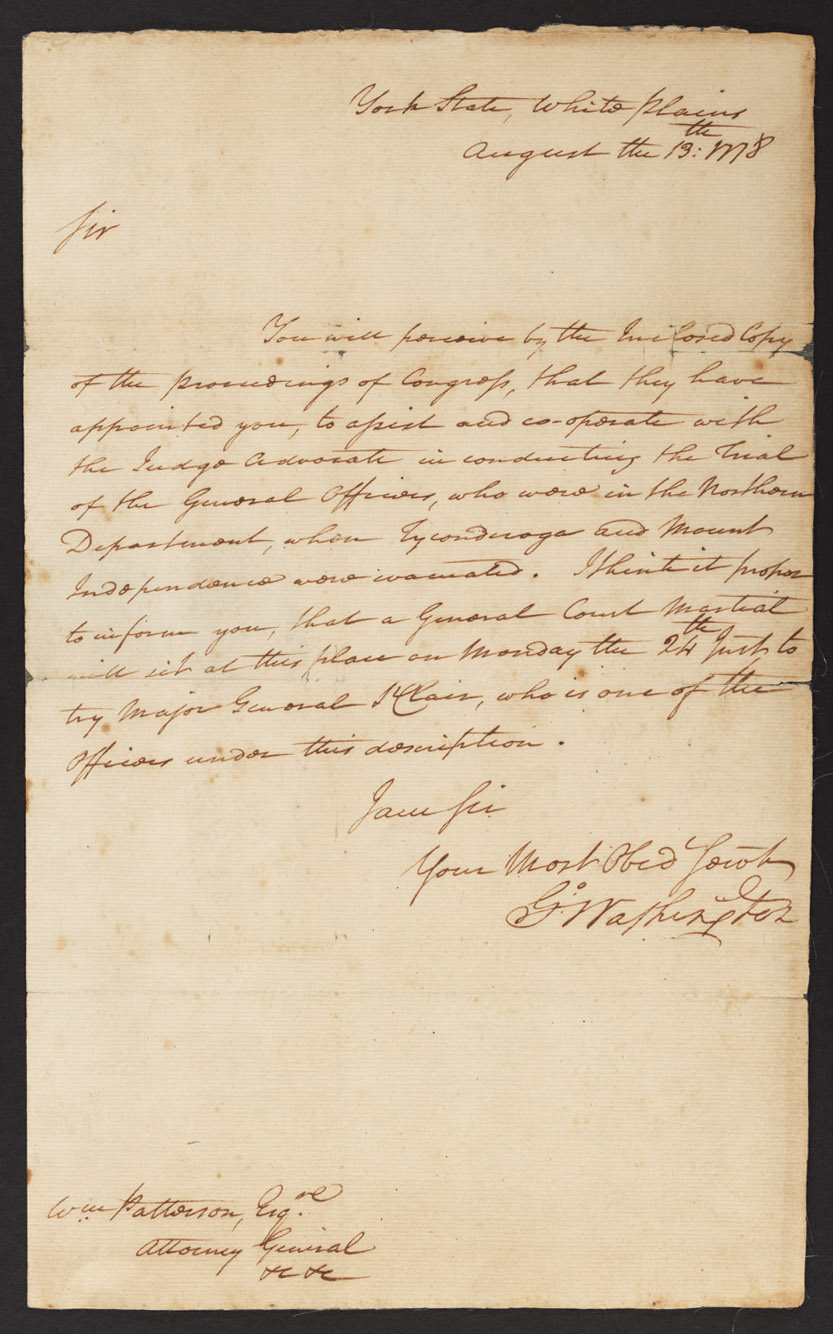 York State, White Plains
August the 13:th 1778
Sir
You will perceive by the Inclosed Copy
of the proceedings of Congress, that they have
appointed you, to assist and co-operate with
the Judge Advocate in conducting the Trial
of the General Officers, who were in the Northern
Department, when Tyconderoga and Mount
Independence were evacuated. I think it proper
to inform you, that a General Court Martial
will sit at this place on Monday the 24th Inst. to
try Major General St Clair, who is one of the
Officers under this description.
I am Sir
Your Most Obed Servt
Go: Washington
Wm Patterson, Esq.re
Attorney General
&c &c